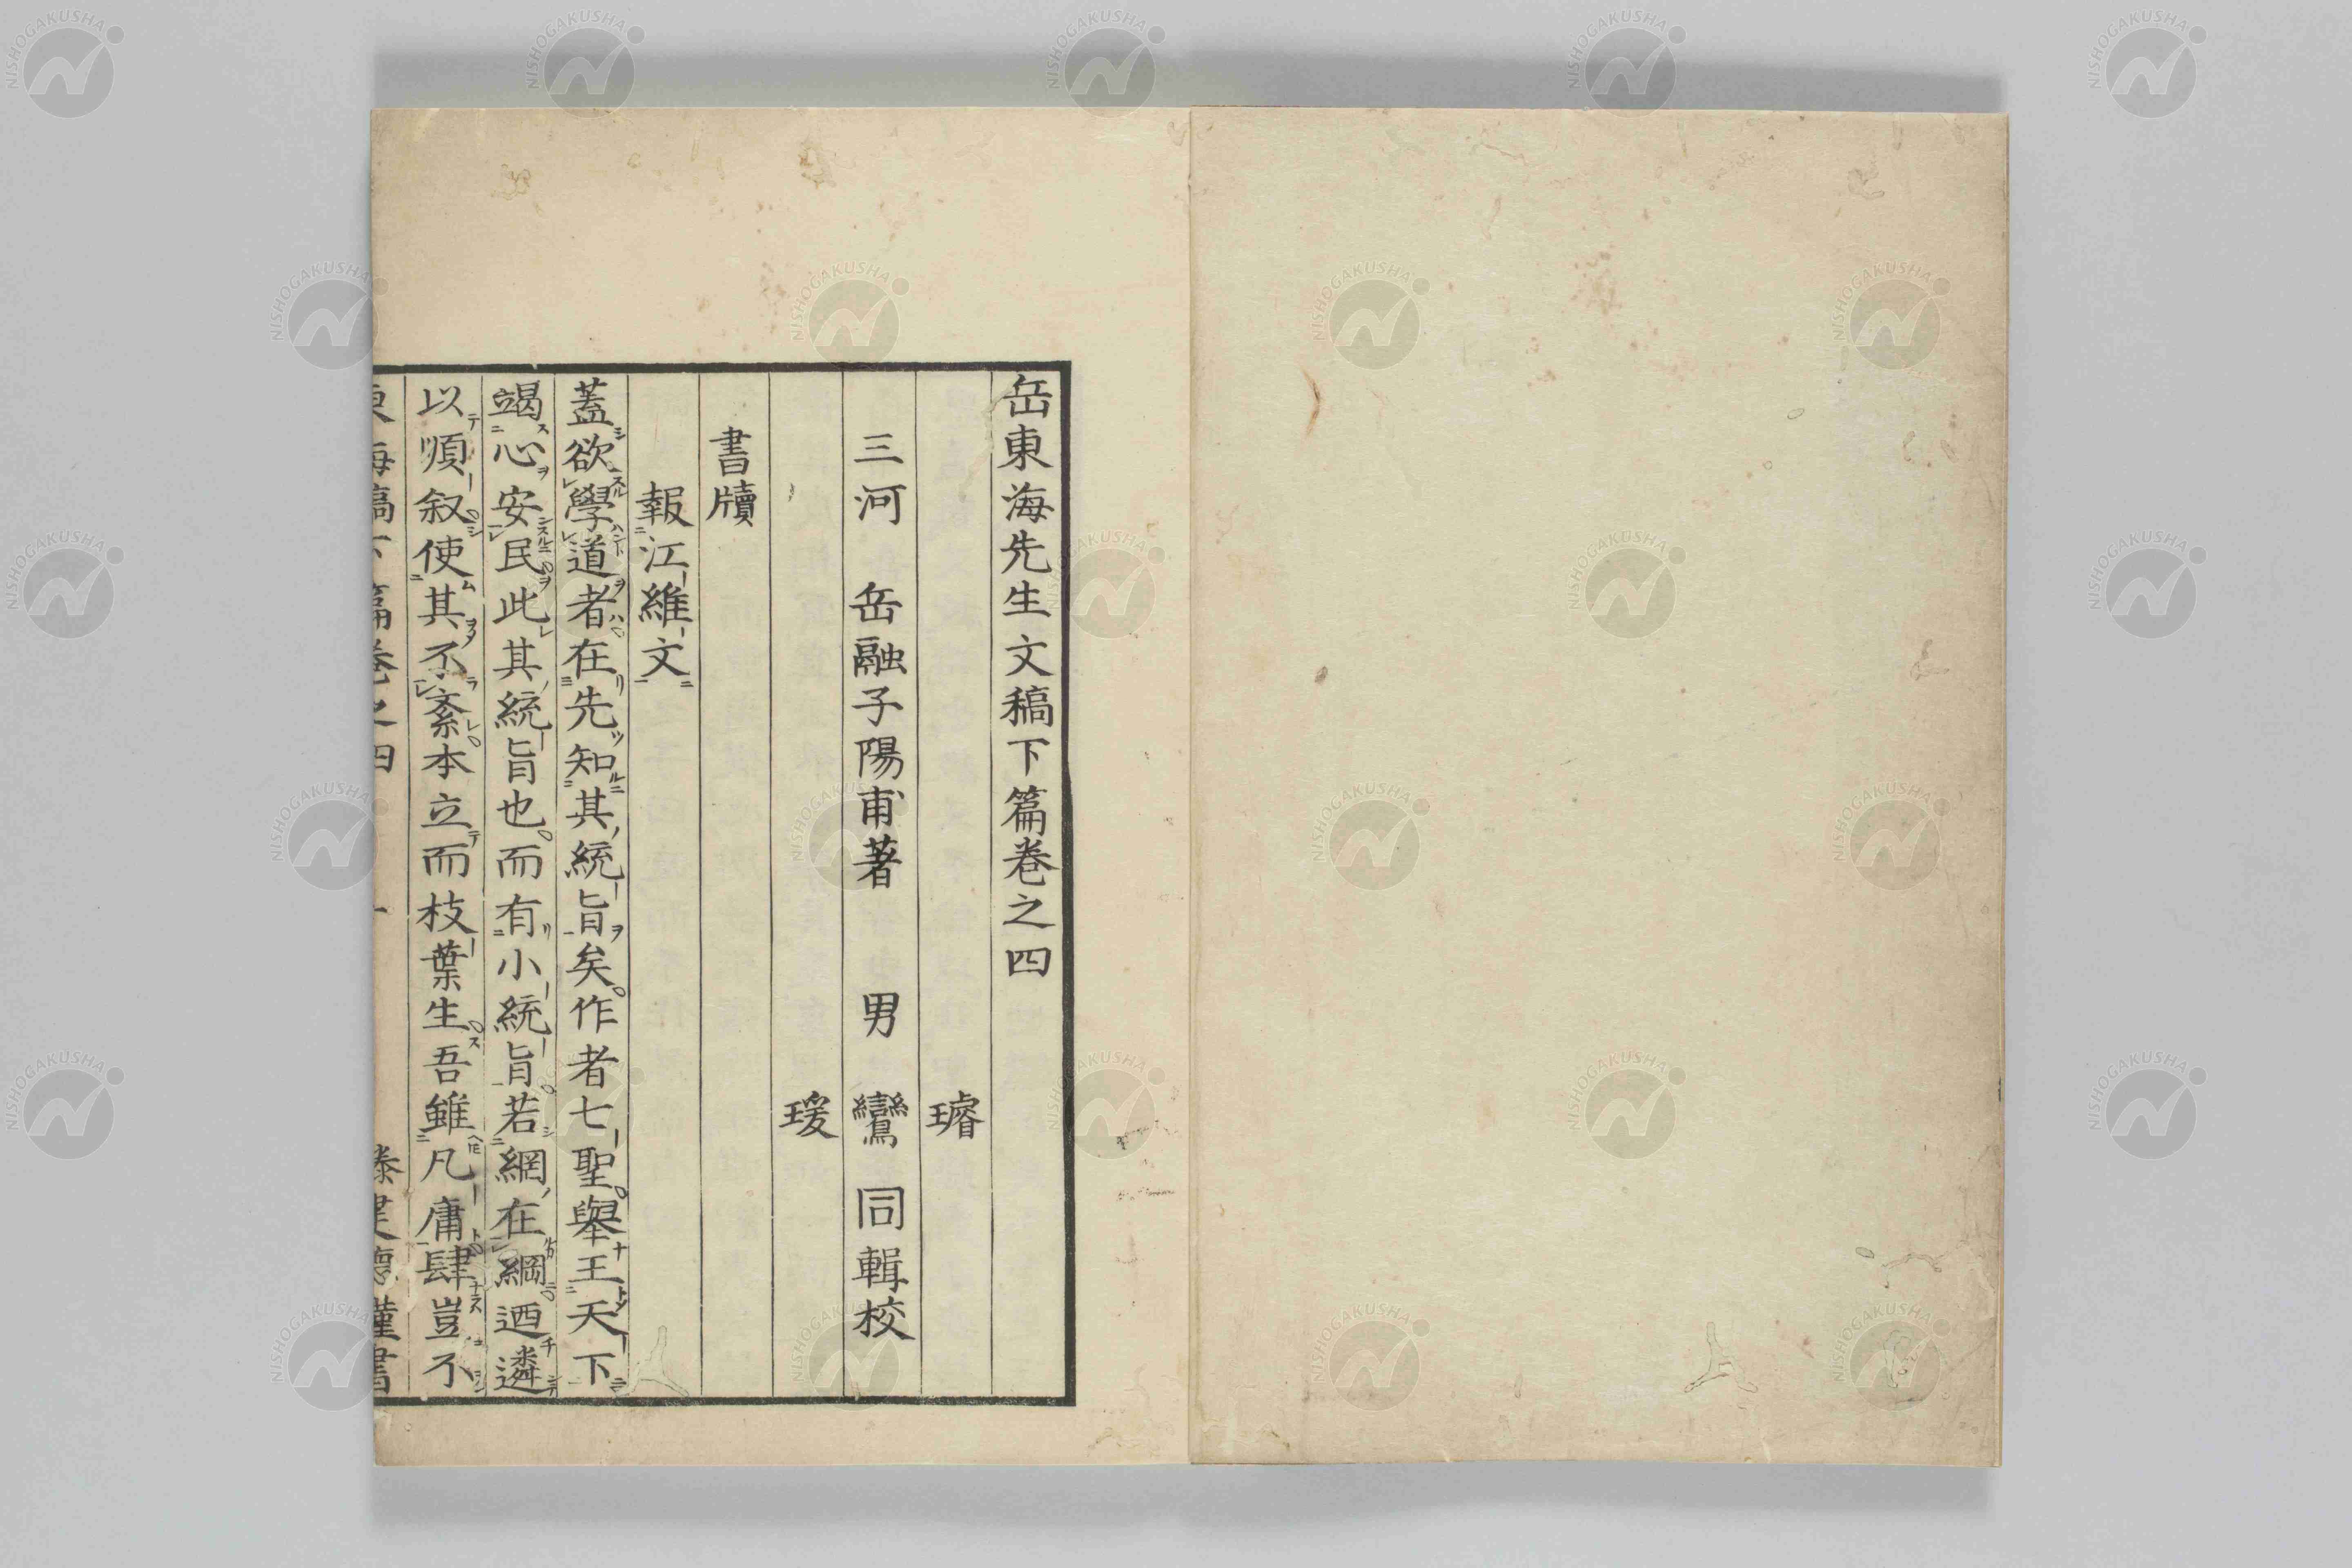 岳東海先生文稿下篇卷之四
璿
三河 岳融子陽甫著 男 鸞 同輯校
瑗
書牘
報江維文
蓋欲學道者在先知其統旨矣作者七聖舉王天下
竭心安民此其統旨也而有小統旨若網在綱迺遴
以順叙使其不紊本立而枝葉生吾雖凡庸肆豈不
東海稿下篇卷之四 一 滕建德謹書
NISHOGAKUSHA